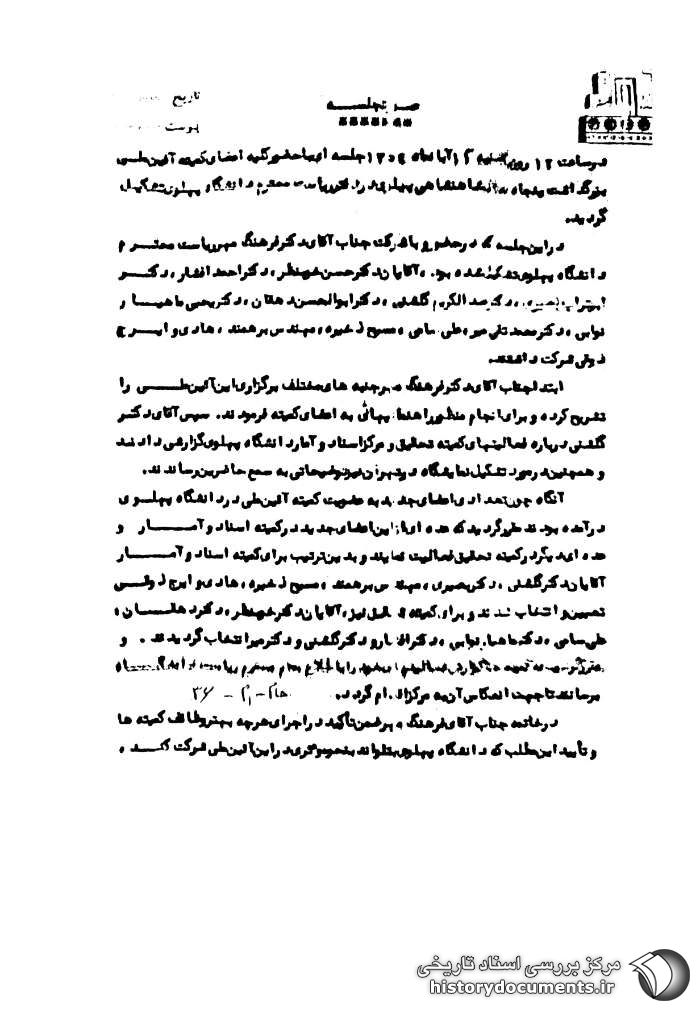 تاریخ
پیوست
صورتجلسه
در ساعت ۱۲ روز شنبه آبانماه ۱۳۵۴ جلسه ای با حضور کلیه اعضای کمیته آئین ملی
بزرگداشت پنجاه سال شاهنشاهی پهلوی در دفتر ریاست محترم دانشگاه پهلوی تشکیل
گردید.
در این جلسه که در حضور و با شرکت جناب آقای دکتر فرهنگ مهر ریاست محترم
دانشگاه پهلوی تشکیل شده بود، آقایان دکتر حسن خوبنظر، دکتر احمد افشار، دکتر
بصیری، دکتر عبدالکریم گلشنی، دکتر ابوالحسن دهقان، دکتر یحیی ماهیار
نوابی، دکتر محمد تقی میر، علی سامی، مسیح ذخیره، مهندس برهمند، هادی و ایرج
ذوقی شرکت داشتند.
ابتدا جناب آقای دکتر فرهنگ مهر جنبه های مختلف برگزاری این آئین ملی را
تشریح کرده و برای انجام منظور راهنمائی به اعضای کمیته فرمودند. سپس آقای دکتر
گلشنی درباره فعالیتهای کمیته تحقیق و مرکز اسناد و آمار دانشگاه پهلوی گزارشی دادند
و همچنین در مورد تشکیل نمایشگاه در تهران نیز توضیحاتی به سمع حاضرین رساندند.
آنگاه چون تعدادی اعضای جدید به عضویت کمیته آئین ملی در دانشگاه پهلوی
درآمده بودند مقرر گردید که عده ای از این اعضای جدید در کمیته اسناد و آمار و
عده ای دیگر در کمیته تحقیق فعالیت نمایند و بدین ترتیب برای کمیته اسناد و آمار
آقایان دکتر گلشنی، دکتر بصیری، مهندس برهمند، مسیح ذخیره، هادی و ایرج ذوقی
تعیین و انتخاب شدند و برای کمیته تحقیق نیز، آقایان دکتر خوبنظر، دکتر دهقان،
علی سامی، دکتر ماهیار نوابی، دکتر افشار و دکتر گلشنی و دکتر میر انتخاب گردیدند. و
مقرر گزارش فعالیتهای خود را به اطلاع مقام محترم ریاست دانشگاه
برسانند تا جهت انعکاس آن به مرکز اقدام گردد.
در خاتمه جناب آقای فرهنگ مهر ضمن تأکید در اجرای هرچه بهتر وظائف کمیته ها
و تأیید این مطلب که دانشگاه پهلوی بتواند بنحو موثری در این آئین ملی شرکت کند،
مرکز بررسی اسناد تاریخی
historydocuments.ir